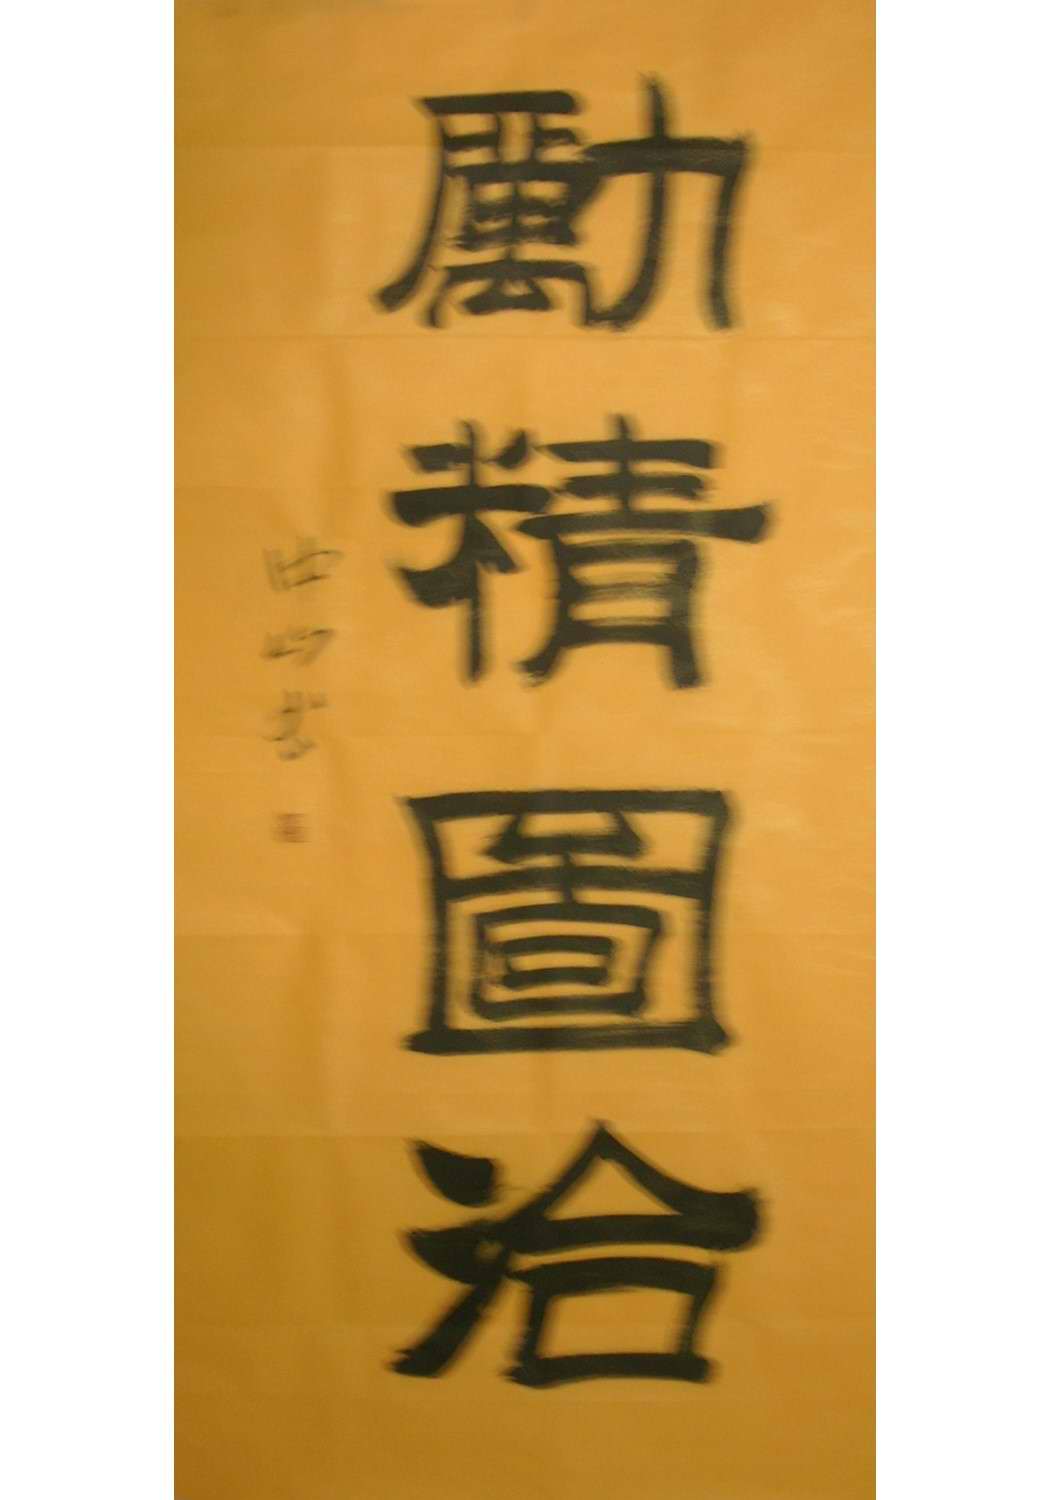 勵精圖治